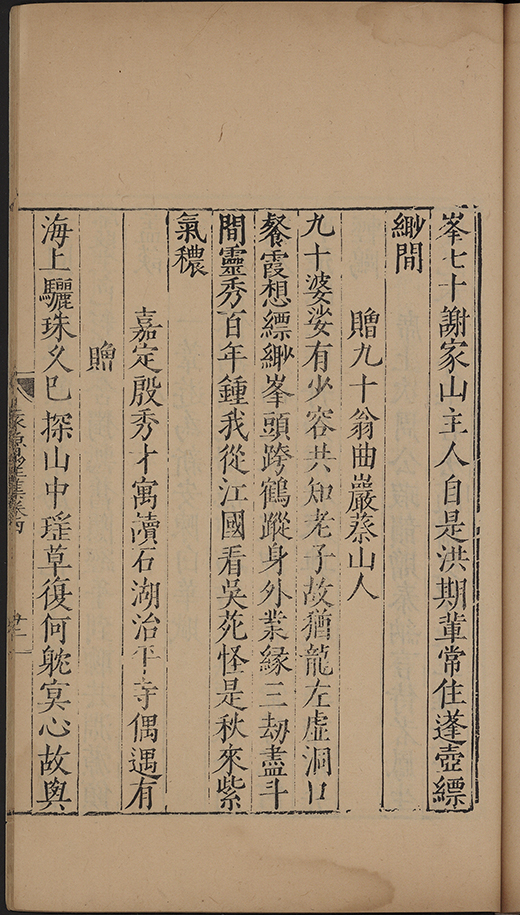 峯七十謝家山主人自是洪期輩常住蓬壺縹
緲間
贈九十翁曲巖蔡山人
九十婆娑有少容共知老子故猶龍左虚洞口
餐霞想縹緲峯頭跨鶴蹤身外業緣三劫盡斗
間靈秀百年鍾我從江國看吳苑怪是秋來紫
氣穠
嘉定殷秀才寓讀石湖治平寺偶遇有
贈
海上驪珠久已探山中瑤草復何躭㝠心故與